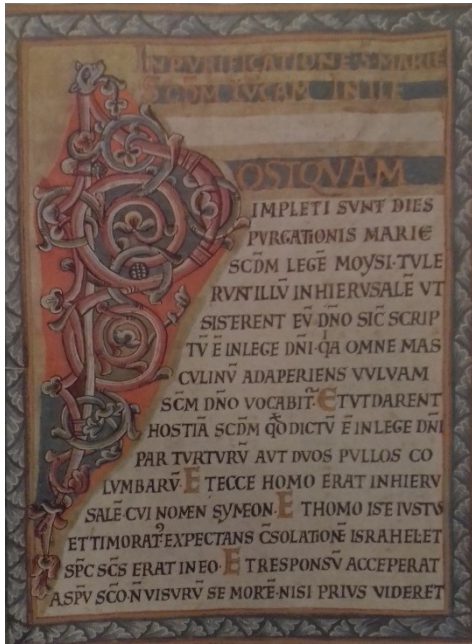 IN PVRIFICATIONE S MARIE
SCDM LVCAM IN ILL
POSTQVAM
IMPLETI SVNT DIES
PVRGATIONIS MARIE
SCDM LEGĒ MOYSI·TVLE
RVNT ILLV̄ INHIERVSALĒ VT
SISTERENT EV̄ DN̄O SIC̄ SCRIP
TV̄ Ē INLEGE DN̄I·Q̄A OMNE MAS
CVLINV̄ ADAPERIENS VVLVAM
SC̄M DN̄O VOCABIT᷑·ETVTDARENT
HOSTIĀ SCDM QD̄ DICTV̄ Ē INLEGE DN̄I
PAR TVRTVRV̄ AVT DVOS PVLLOS CO
LVMBARV̄·ETECCE HOMO ERAT INHIERV
SALĒ·CVI NOMEN SYMEON·ETHOMO ISTE IVSTVS
ETTIMORAT᷑·EXPECTANS C̄SOLATIONĒ ISRAHELET
SP̄C SC̄S ERAT INEO·ETRESPONSV̄ ACCEPERAT
ASPV̄ SC̄O·N̄ VISVRV̄ SE MORTĒ·NISI PRIVS VIDERET